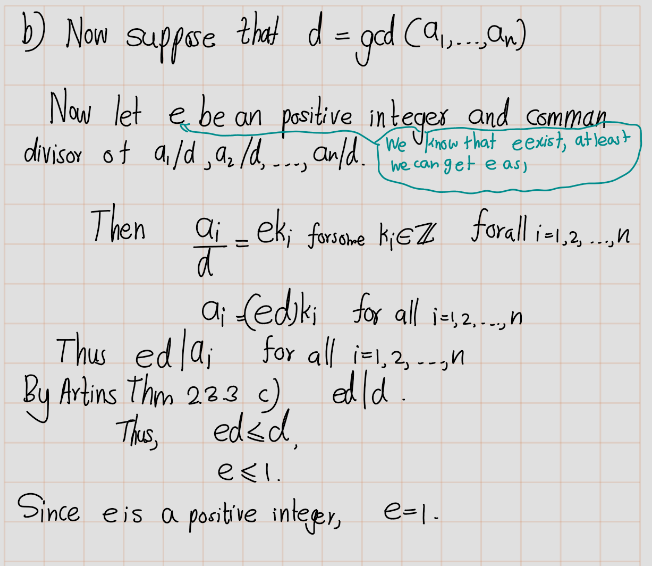 b) Now suppose that d = gcd (a₁,...,aₙ)
Now let e be an positive integer and comman
divisor of a₁/d, a₂/d, ..., aₙ/d.
We know that e exist, atleast
we can get e as 1
Then aᵢ/d = ekᵢ forsome kᵢ∈ℤ forall i=1,2, ...,n
aᵢ = (ed)kᵢ for all i=1,2,...,n
Thus ed|aᵢ for all i=1,2, ...,n
By Artins Thm 2.3.3 c) ed|d.
Thus, ed≤d,
e≤1.
Since e is a positive integer, e=1.